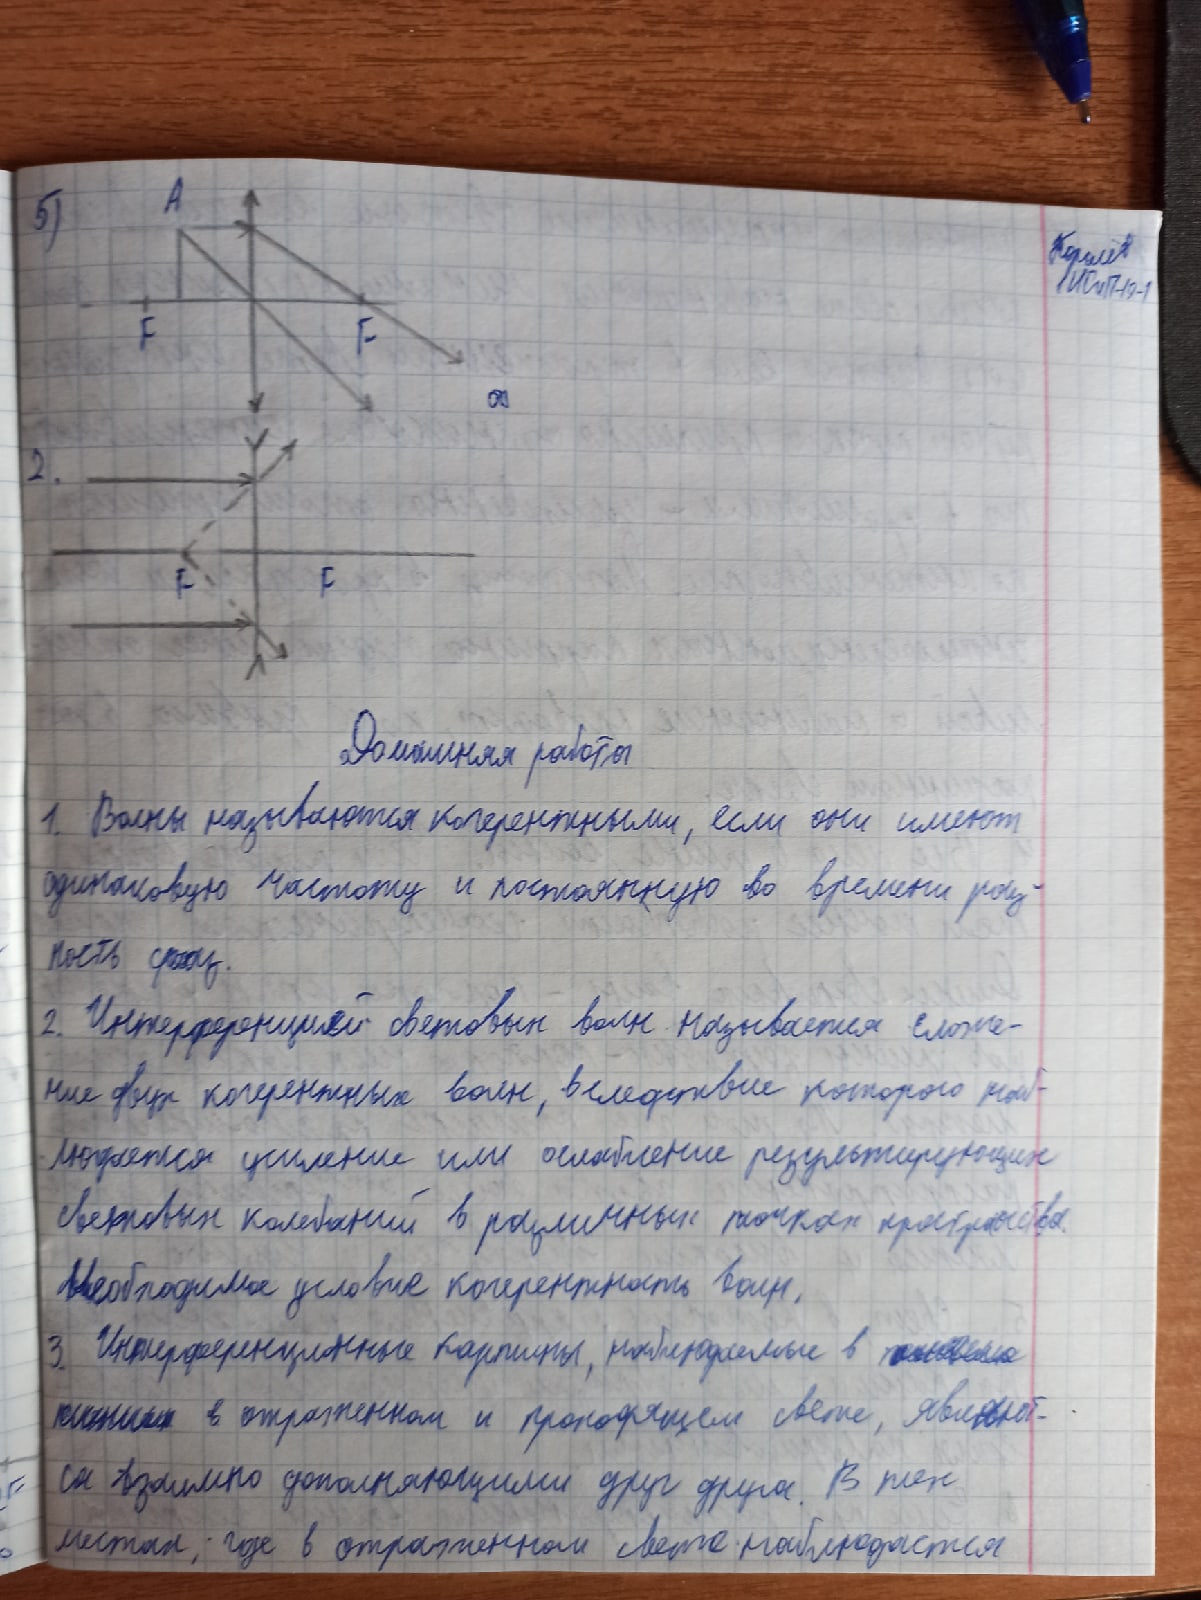 5)
A
F
F
∞
2.
F
F
Домашняя работы
1. Волны называются когерентными, если они имеют
одинаковую частоту и постоянную во времени раз-
ность фаз.
2. Интерференцией световых волн называется сложе-
ние двух когерентных волн, вследствие которого наб-
людается усиление или ослабление результирующих
световых колебаний в различных точках пространства.
Необходимое условие когерентность волн.
3. Интерференционные картины, наблюдаемые в
в отраженном и проходящем свете, являют-
ся взаимно дополняющими друг друга. В тех
местах, где в отраженном свете наблюдается